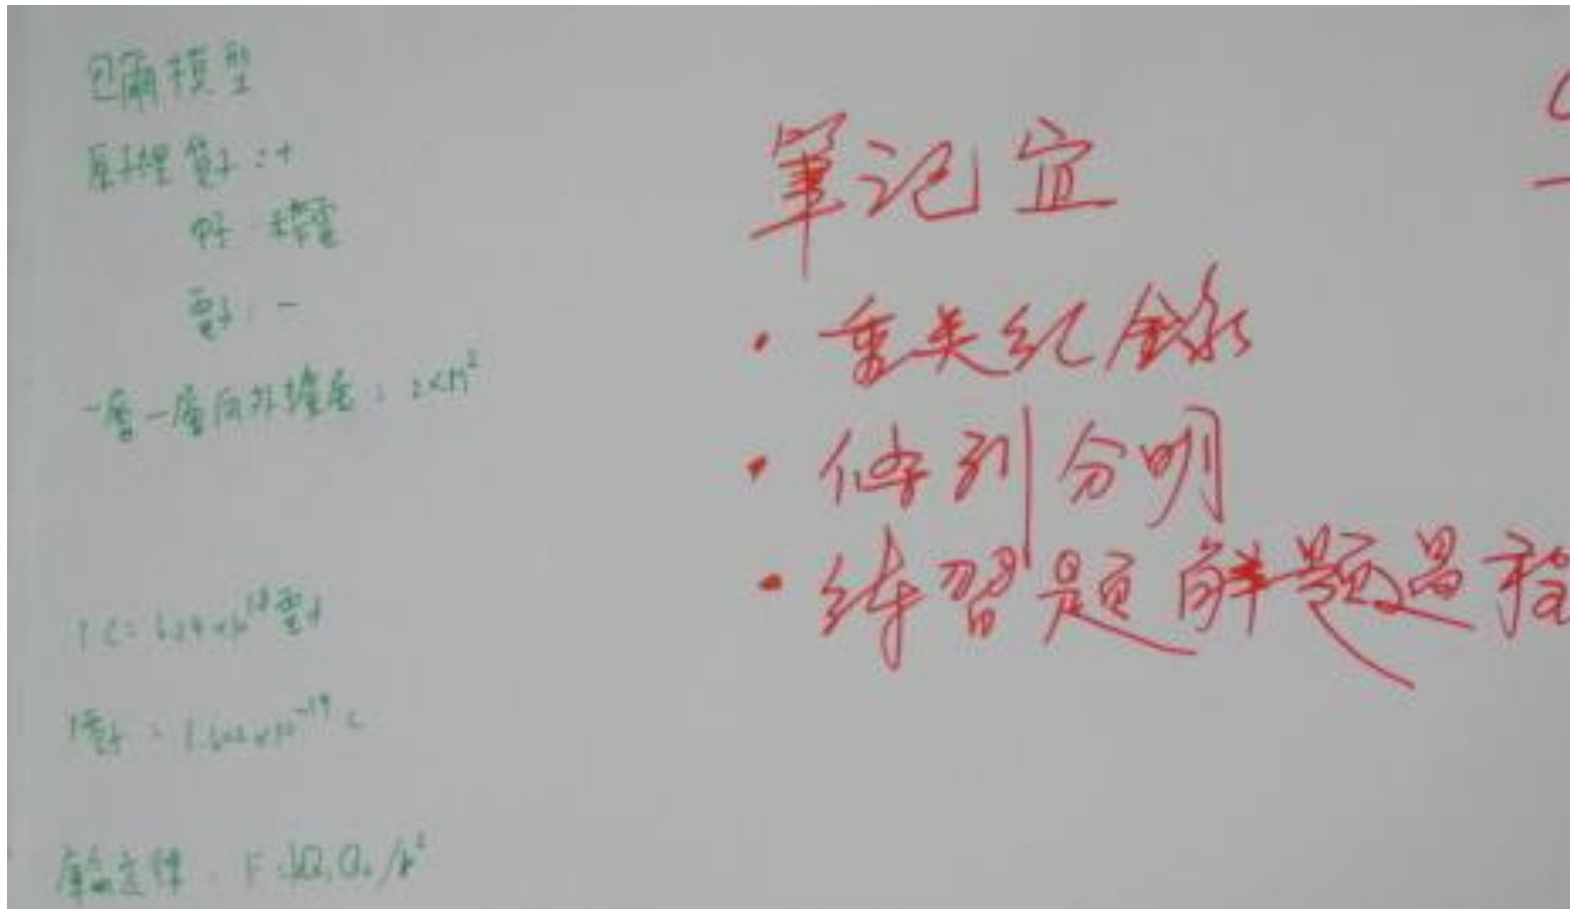 包爾模型
原子核 質子：+
中子：不帶電
電子：－
一層一層向外擴產：2×n²
1 C = 6.24×10¹⁸電子
1電子 = 1.602×10⁻¹⁹ C
庫倫定律：F=kQ₁Q₂/r²
筆記宜
·重點紀錄
·條列分明
·練習題解題過程